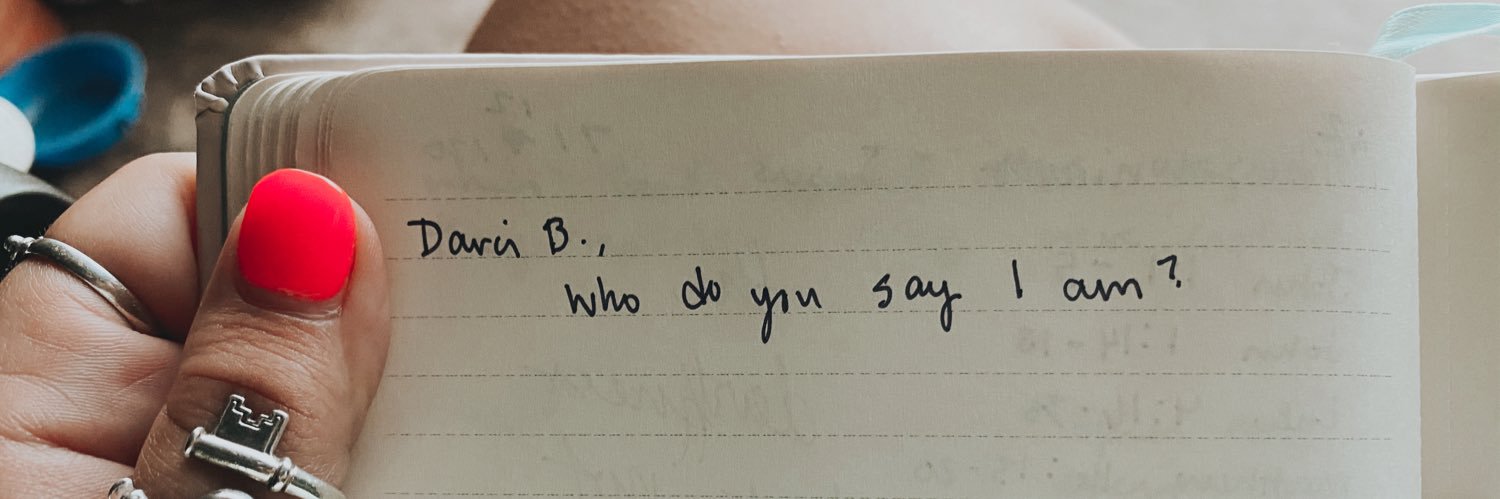 Darci B.,
who do you say I am?